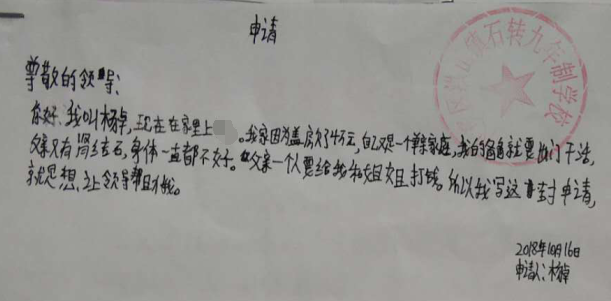 申请
尊敬的领导:
你好,我叫杨,现在在家里上。我家因为盖房欠了4万元,自己又是一个单亲家庭,我的爸爸就要出门干活,
父亲又有肾结石,身体一直都不好。父亲一个人要给我和姐姐打钱。所以我写这封申请,
就想让领导帮助我。
2018年10月16日
申请人:杨
石转九年制学校